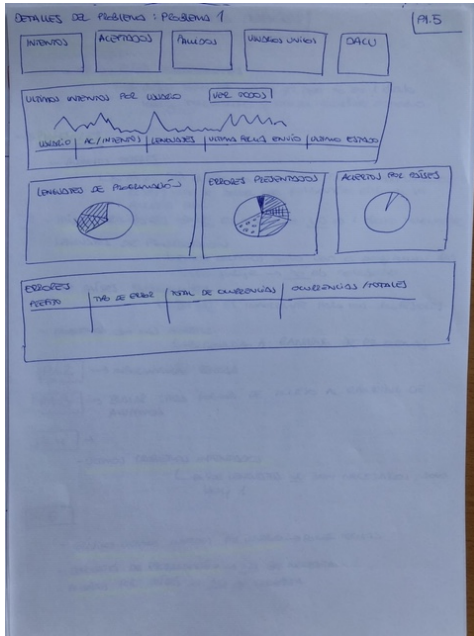 DETALLES DEL PROBLEMA : PROBLEMA 1
P1.5
INTENTOS
ACEPTADOS
FALLIDOS
USUARIOS ÚNICOS
DACU
ULTIMOS INTENTOS POR USUARIO
VER TODOS
USUARIO | AC/INTENTOS | LENGUAJES | ULTIMA FECHA ENVÍO | ULTIMO ESTADO
LENGUAJES DE PROGRAMACIÓN
ERRORES PRESENTADOS
ACIERTOS POR PAÍSES
ERRORES
TIPO DE ERROR
TOTAL DE OCURRENCIAS
OCURRENCIAS / TOTALES